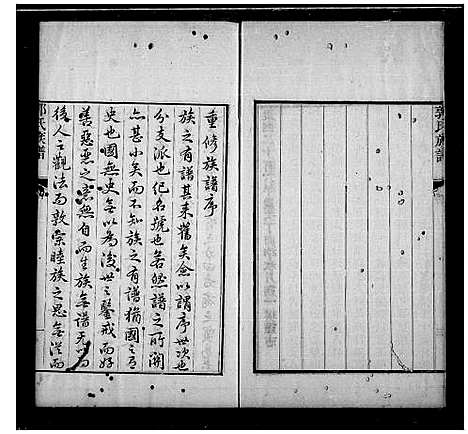 重修族譜序
族之有譜其来舊矣僉以謂序世次也
分支派也紀名號也若然譜之所關
亦甚小矣而不知族之有譜猶國之有
史也國無史無以為後世之鑒戒而好
善惡惡之念無自而生族無譜無以為
後人之觀法而敦宗睦族之思無從而
郭氏族譜
郭氏族譜